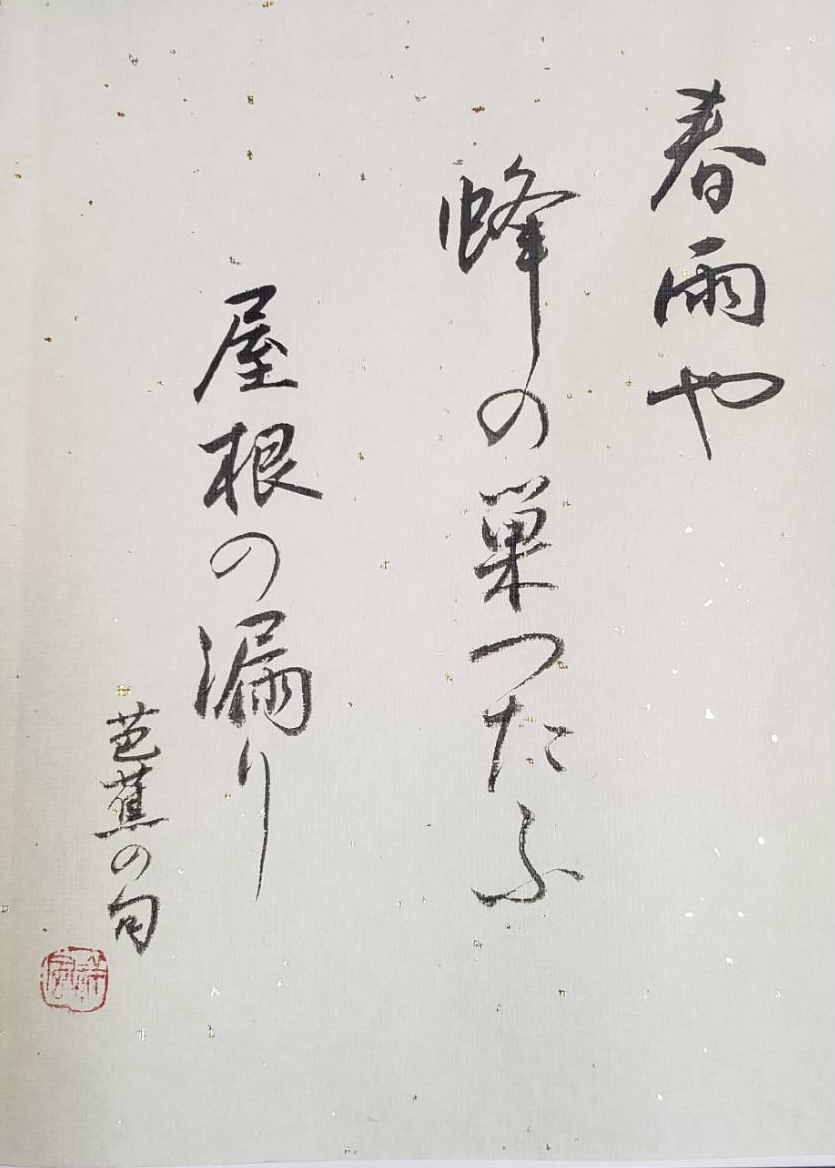 春雨や
蜂の巣つたふ
屋根の漏り
芭蕉の句